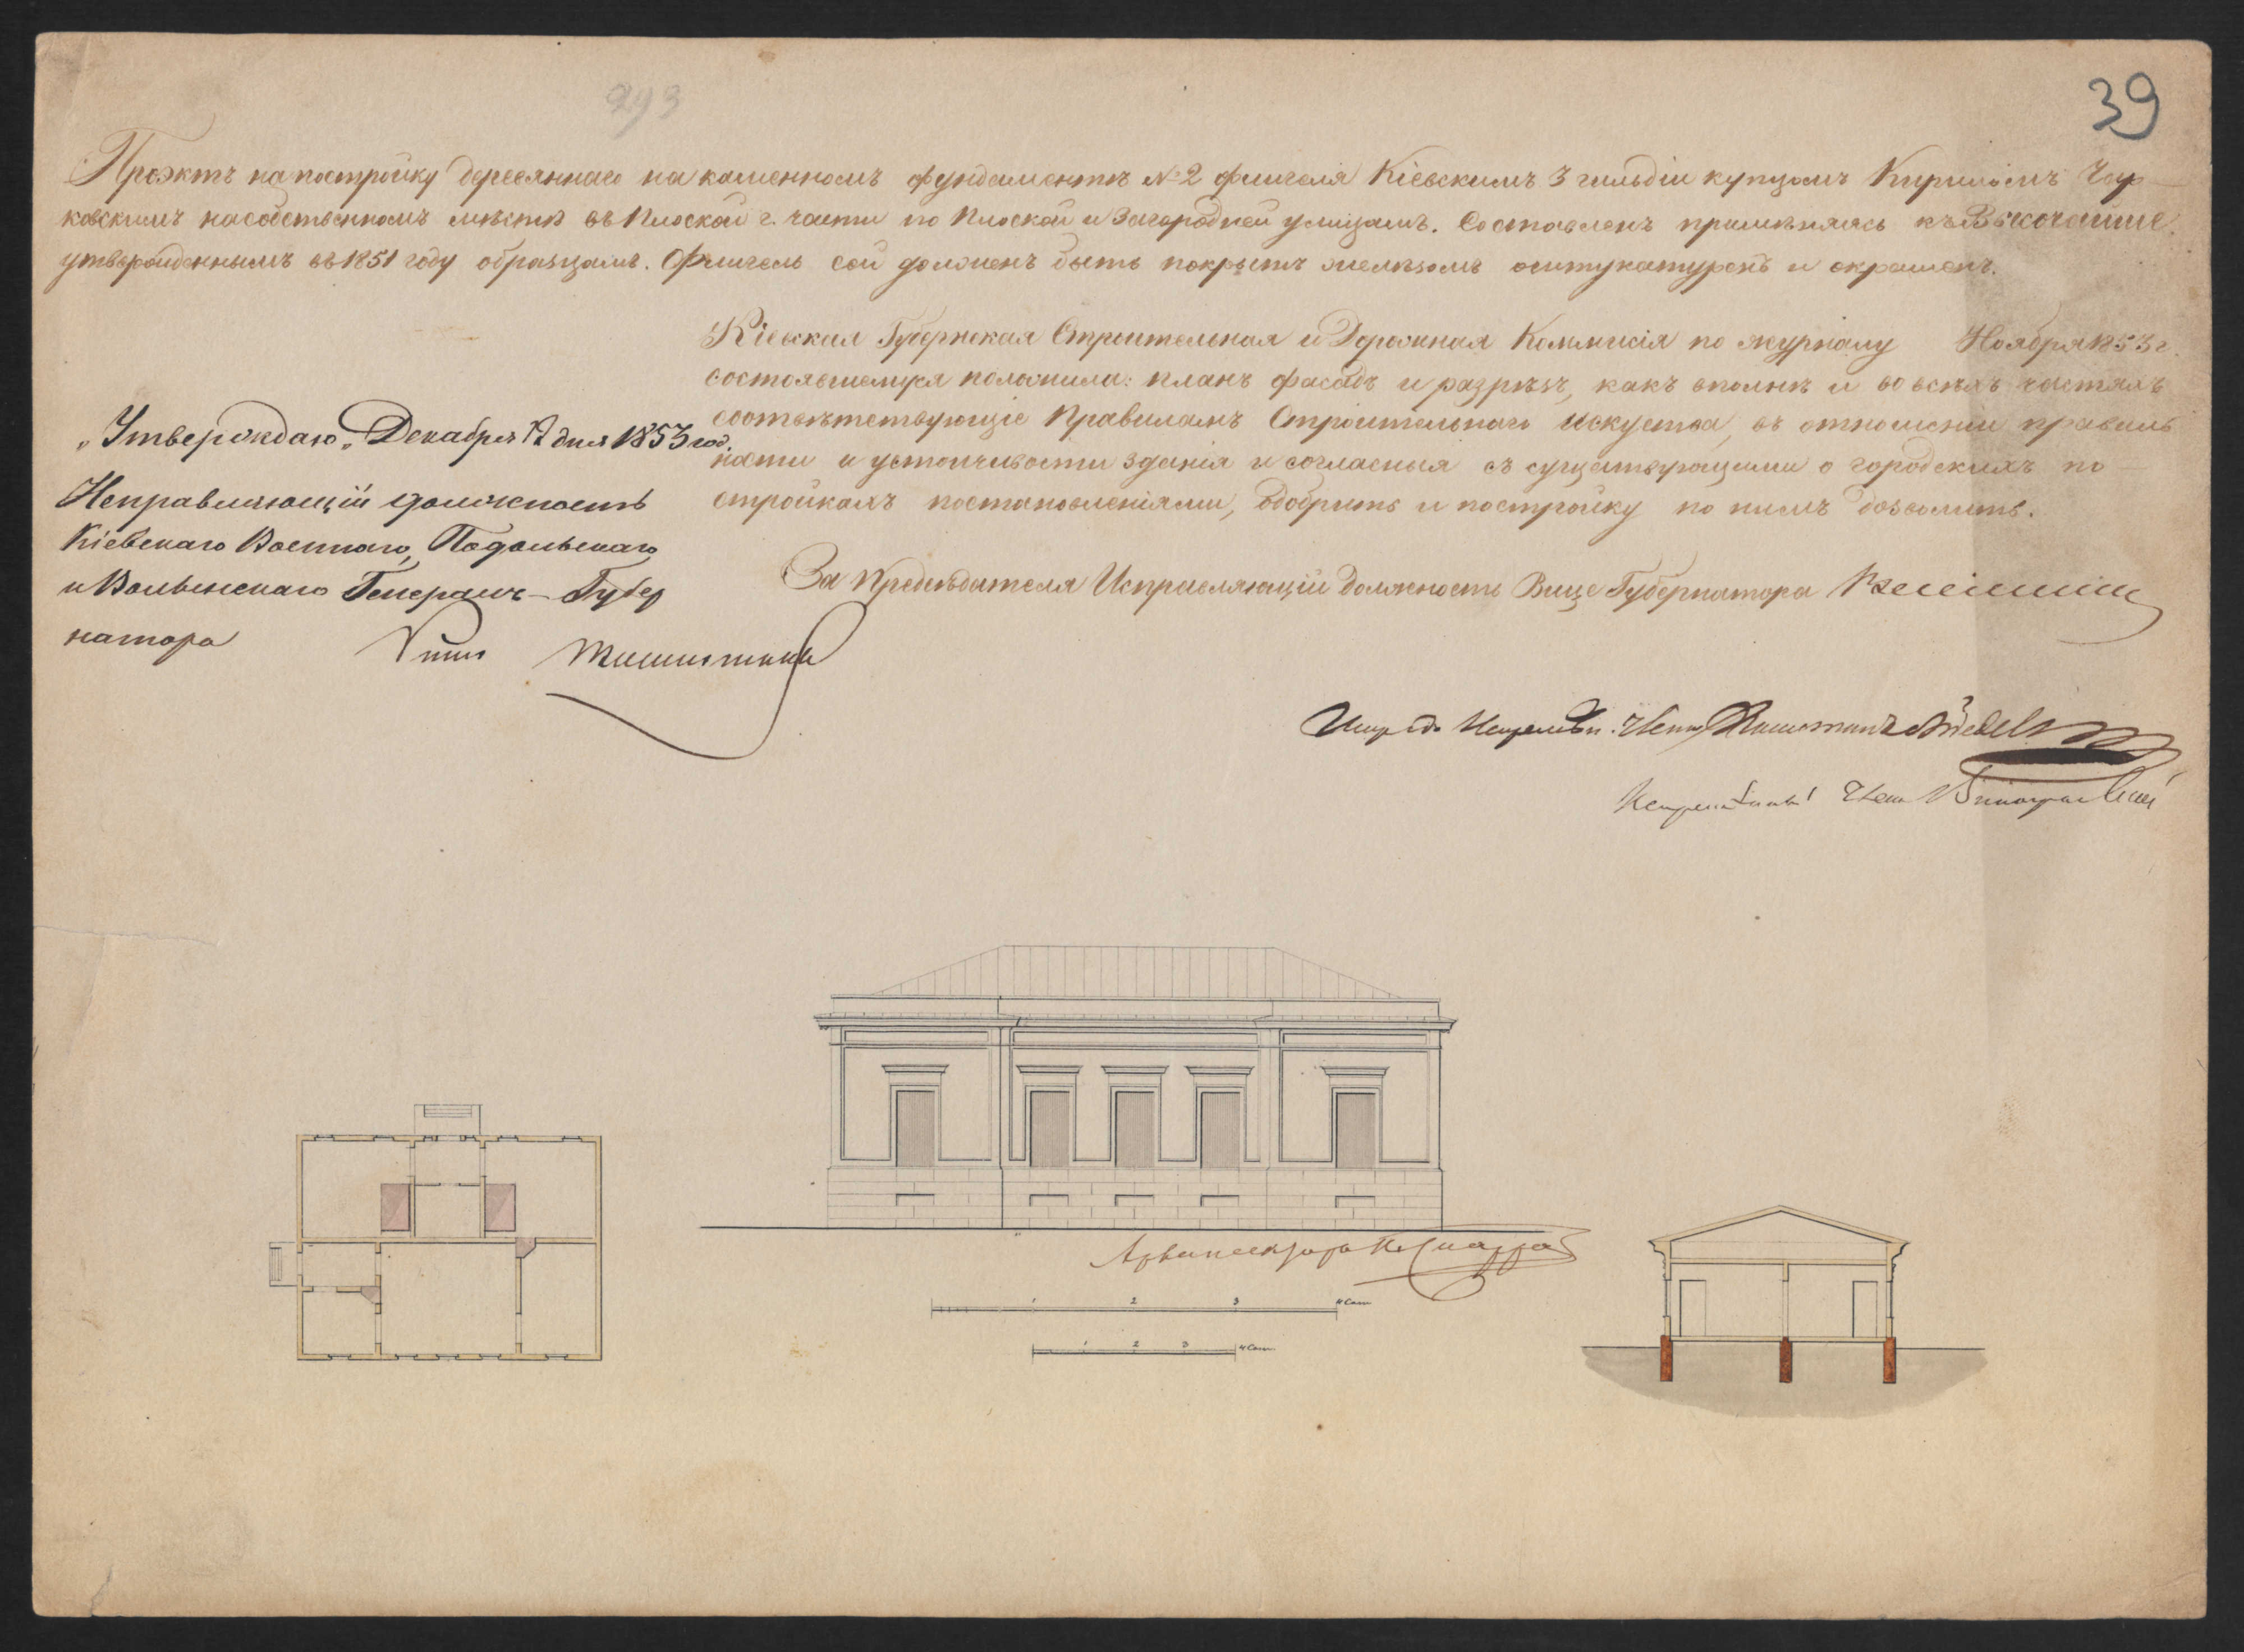 293
39
Проэктъ на постройку деревяннаго на каменномъ фундаментѣ №2 флигеля Кіевскимъ 3 гильдіи купцомъ Кириломъ
ковскимъ на собственномъ мѣстѣ въ Плоской г. части по Плоской и Загородней улицамъ. Составленъ примѣняясь къ Высочайше
утвержденнымъ въ 1851 году образцамъ. Флигель сей долженъ быть покрытъ желѣзомъ оштукатуренъ и окрашенъ.
Кіевская Губернская Строительная и Дорожная Коммисія по журналу Ноября 1853 г.
состоявшемуся положила: планъ фасадъ и разрѣзъ, какъ вполнѣ и во всѣхъ частяхъ
соотвѣтствующіе Правиламъ Строительнаго Искуства, въ отношеніи правиль
ности и устойчивости зданія и согласныя съ существующими о городскихъ по—
стройкахъ постановленіями, одобрить и постройку по нимъ дозволить.
„Утверждаю„ Декабря 12 дня 1853 год.
Исправляющій должность
Кіевскаго Военнаго, Подольскаго
и Волынскаго Генералъ-Губер
натора
За Предсѣдателя Исправляющій должность Вице Губернатора
Членъ Капитанъ
Членъ
Архитекторъ
1 2 3 4 Саж
1 2 3 4 Саж